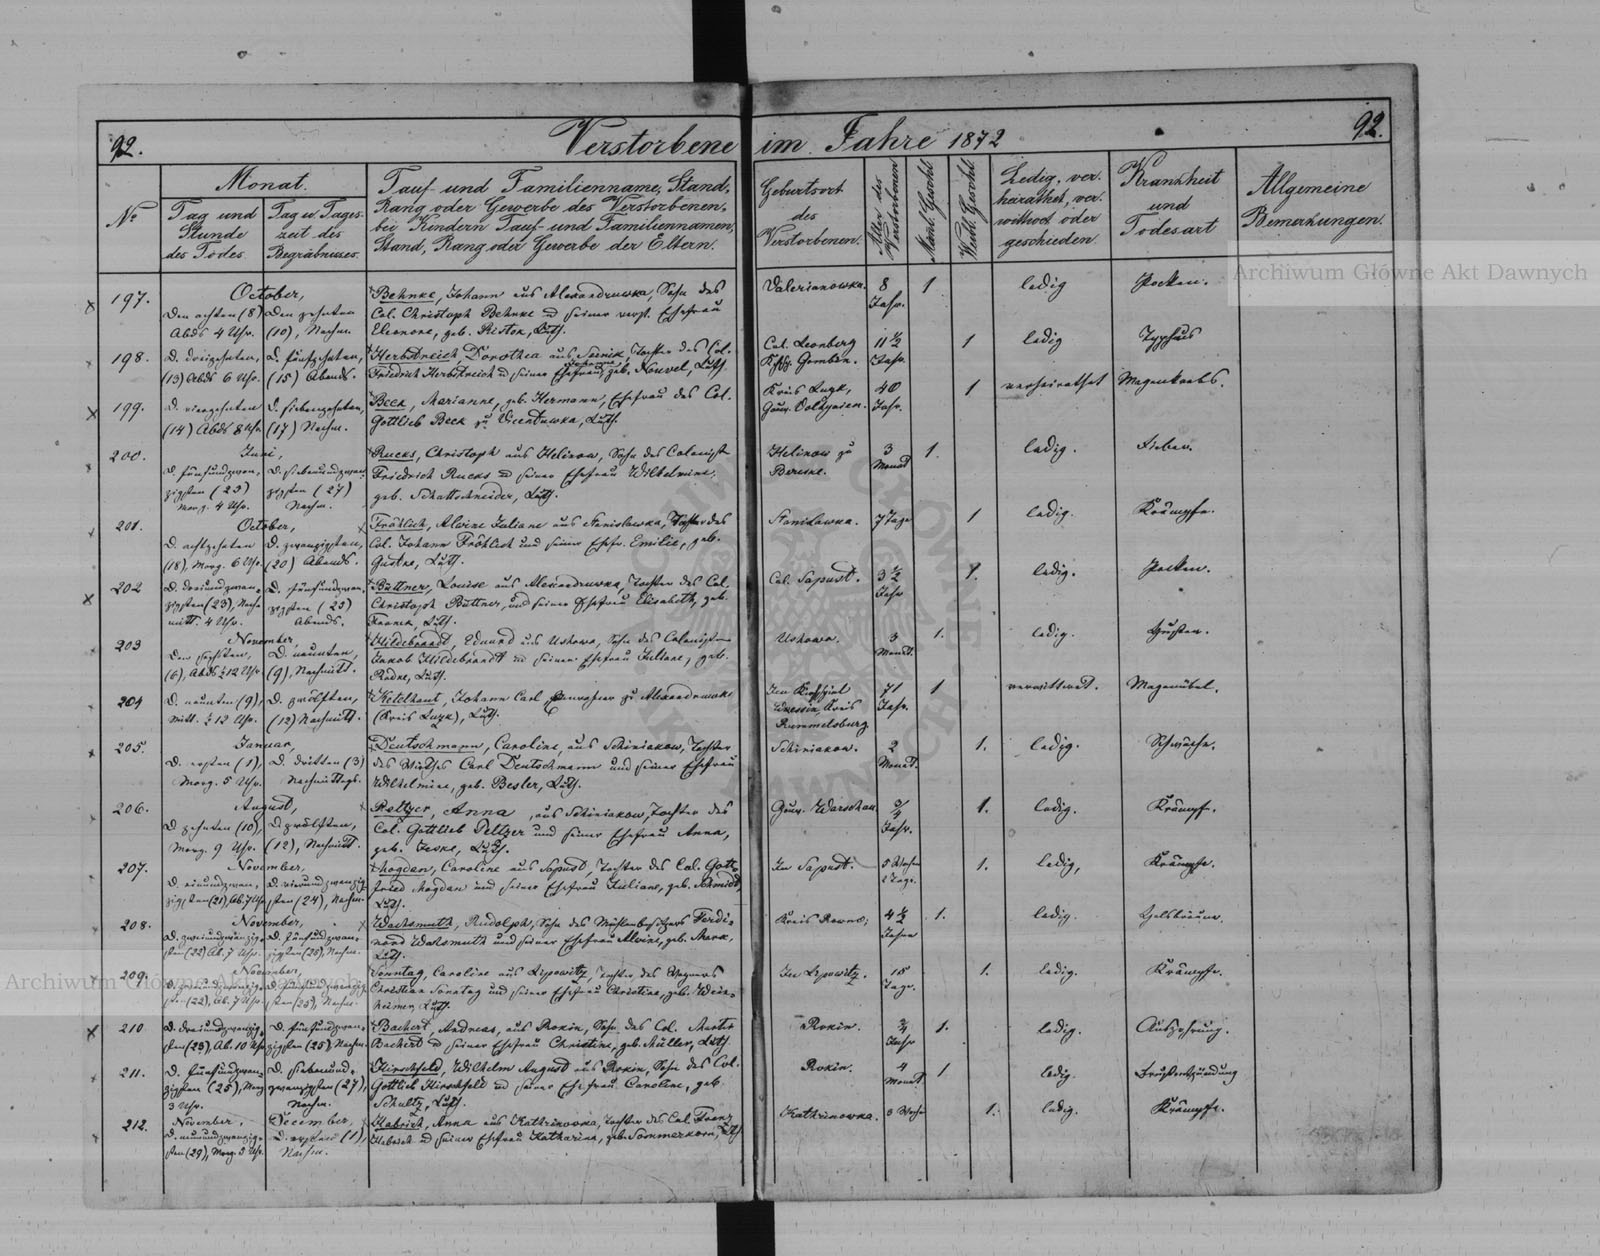 92.
Verstorbene im Jahre 1872
92.
No
Monat.
Tag und Stunde des Todes.
Tag u. Tageszeit des Begräbnisses.
Tauf- und Familienname, Stand, Rang oder Gewerbe des Verstorbenen, bei Kindern Tauf- und Familiennamen, Stand, Rang oder Gewerbe der Eltern.
Geburtsort des Verstorbenen.
Alter des Verstorbenen
Mänl. Geschl.
Weibl. Geschl.
Ledig, verheirathet, verwittwet oder geschieden.
Krankheit und Todesart
Allgemeine Bemerkungen.
197.
October,
Den achten (8) Abds 4 Uhr.
Den zehnten (10), Nachm.
Behnke, Johann aus Alexandruwka, Sohn des
Col. Christoph Behnke u seiner verst. Ehefrau
Eleonore, geb. Ristok, Luth.
Valerianowka.
8 Jahr.
1
ledig
Pocken.
198.
D. dreizehnten, (13) Abds 6 Uhr.
D. fünfzehnten, (15) Abends.
Herbstreich Dorothea aus Sernik, Tochter des Col.
Friedrich Herbstreich u seiner Ehefrau Johanne, geb. Neuvel, Luth.
Col. Leonberg
11 1/2 Jahr.
1
ledig
Typhus
199.
D. vierzehnten (14) Abds 8 Uhr
D. siebenzehnten, (17) Nachm.
Beck, Marianne, geb. Hermann, Ehefrau des Col.
Gottlieb Beck zu Vicentuwka, Luth.
Kreis Luzk, Gouv. Volhynien.
40 Jahr.
1
verheirathet
Magenkrebs.
200.
Juni,
D. fünfundzwanzigsten (25) Morg. 4 Uhr.
D. siebenundzwanzigsten (27) Nachm.
Rucks, Christoph aus Helinow, Sohn des Colonist
Friedrich Rucks u seiner Ehefrau Wilhelmine,
geb. Schattschneider, Luth.
Helinow zu Bereske.
3 Monat
1.
ledig.
Fieber.
201.
October,
D. achtzehnten (18), Morg. 6 Uhr.
D. zwanzigsten, (20) Abends.
Fröhlich, Alvine Juliane aus Stanislawka, Tochter des
Col. Johann Fröhlich und seiner Ehefr. Emilie, geb.
Gustke, Luth.
Stanislawka.
7 Tage
1
ledig.
Krämpfe.
202
D. dreiundzwanzigsten (23), Nachmitt. 4 Uhr.
D. fünfundzwanzigsten (25) Abends.
Büttner, Louise aus Alexandruwka, Tochter des Col.
Christoph Büttner, und seiner Ehefrau Elisabeth, geb.
Luth.
Col. Sapust.
3 1/2 Jahr
1.
ledig.
Pocken.
203
November,
Den sechsten, (6), Abds 1/2 12 Uhr
D. neunten, (9), Nachmitt.
Hildebrandt, Eduard aus Uskowa, Sohn des Colonisten
Jakob Hildebrandt u seiner Ehefrau Juliane, geb.
Radke, Luth.
Uskowa.
3 Monat.
1.
ledig.
Husten.
204
D. neunten (9), Mitt. 1/2 12 Uhr.
D. zwölften, (12) Nachmitt.
Ketelhaut, Johann Carl Einwohner zu Alexandruwka
(Kreis Luzk), Luth.
Im Kirchspiel Kreis Rummelsburg
71 Jahr.
1
verwittwet.
Magenübel.
205.
Januar,
D. ersten (1), Morg. 5 Uhr.
D. dritten (3) Nachmittags.
Deutschmann, Caroline, aus Schiniakow, Tochter
des Wirthes Carl Deutschmann und seiner Ehefrau
Wilhelmine, geb. Besler, Luth.
Schiniakow.
2 Monat.
1.
ledig.
Schwäche.
206.
August,
D. zehnten (10), Morg. 9 Uhr.
D. zwölften, (12), Nachmitt.
Peltzer, Anna, aus Schiniakow, Tochter des
Col. Gottlieb Peltzer und seiner Ehefrau Anna,
geb. Jeske, Luth.
Gouv. Warschau
3/4 Jahr.
1.
ledig.
Krämpfe.
207.
November,
D. einundzwanzigsten (21), Ab. 7 Uhr
D. vierundzwanzigsten (24), Nachm.
Mogdan, Caroline aus Sapust, Tochter des Col. Gottfried Mogdan und seiner Ehefrau Juliane, geb. Schmidt,
Luth.
In Sapust.
5 Wochen 2 Tage.
1.
ledig,
Krämpfe.
208.
November,
D. zweiundzwanzigsten (22) Ab. 7 Uhr.
D. fünfundzwanzigsten (25), Nachm.
Wachsmuth, Rudolph, Sohn des Mühlenbesitzers Ferdinand Wachsmuth und seiner Ehefrau Alvine, geb. Mark,
Luth.
Kreis Rowno;
4 1/2 Jahren
1.
ledig.
Halsbräune.
209.
November,
D. zweiundzwanzigsten (22), Ab. 7 Uhr.
D. fünfundzwanzigsten (25), Nachm.
Sonntag, Caroline aus Lipowitz, Tochter des Wagners
Christian Sonntag und seiner Ehefrau Christine, geb. Weinheimer, Luth.
In Lipowitz.
15 Tage.
1.
ledig.
Krämpfe.
210.
D. dreiundzwanzigsten (23), Ab. 10 Uhr
D. fünfundzwanzigsten (25), Nachm.
Bachert, Andreas, aus Rokin, Sohn des Col. Martin
Bachert u seiner Ehefrau Christine, geb. Müller, Luth.
Rokin.
3/4 Jahr
1.
ledig.
Auszehrung.
211.
D. fünfundzwanzigsten (25), Morg 3 Uhr.
D. siebenundzwanzigsten (27), Nachm.
Hirschfeld, Wilhelm August aus Rokin, Sohn des Col.
Gottlieb Hirschfeld u seiner Ehefrau Caroline, geb.
Schultz, Luth.
Rokin.
4 Monat
1
ledig.
Brustentzündung
212.
November,
D. neunundzwanzigsten (29), Morg. 3 Uhr.
December,
D. ersten (1), Nachm.
Habrich, Anna aus Kathrinowka, Tochter des Col. Franz
Habrich u seiner Ehefrau Katharina, geb. Sommerkorn, Luth
Kathrinowka.
3 Woche
1.
ledig.
Krämpfe.
Archiwum Główne Akt Dawnych
Archiwum Główne Akt Dawnych